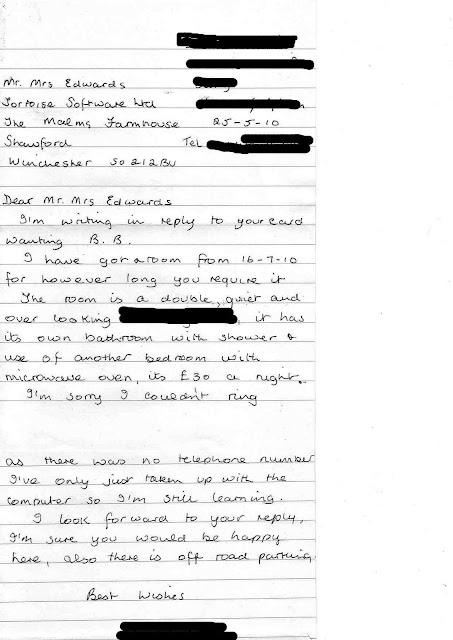 Mr. Mrs Edwards
Tortoise Software Ltd
The Malms Farmhouse 25-5-10
Shawford Tel
Winchester SO212BU
Dear Mr. Mrs Edwards
I'm writing in reply to your card
wanting B. B.
I have got a room from 16-7-10
for however long you require it
The room is a double, quiet and
over looking , it has
its own bathroom with shower &
use of another bedroom with
microwave oven, its £30 a night.
I'm sorry I couldn't ring
as there was no telephone number
I've only just taken up with the
computer so I'm still learning.
I look forward to your reply,
I'm sure you would be happy
here, also there is off road parking.
Best Wishes